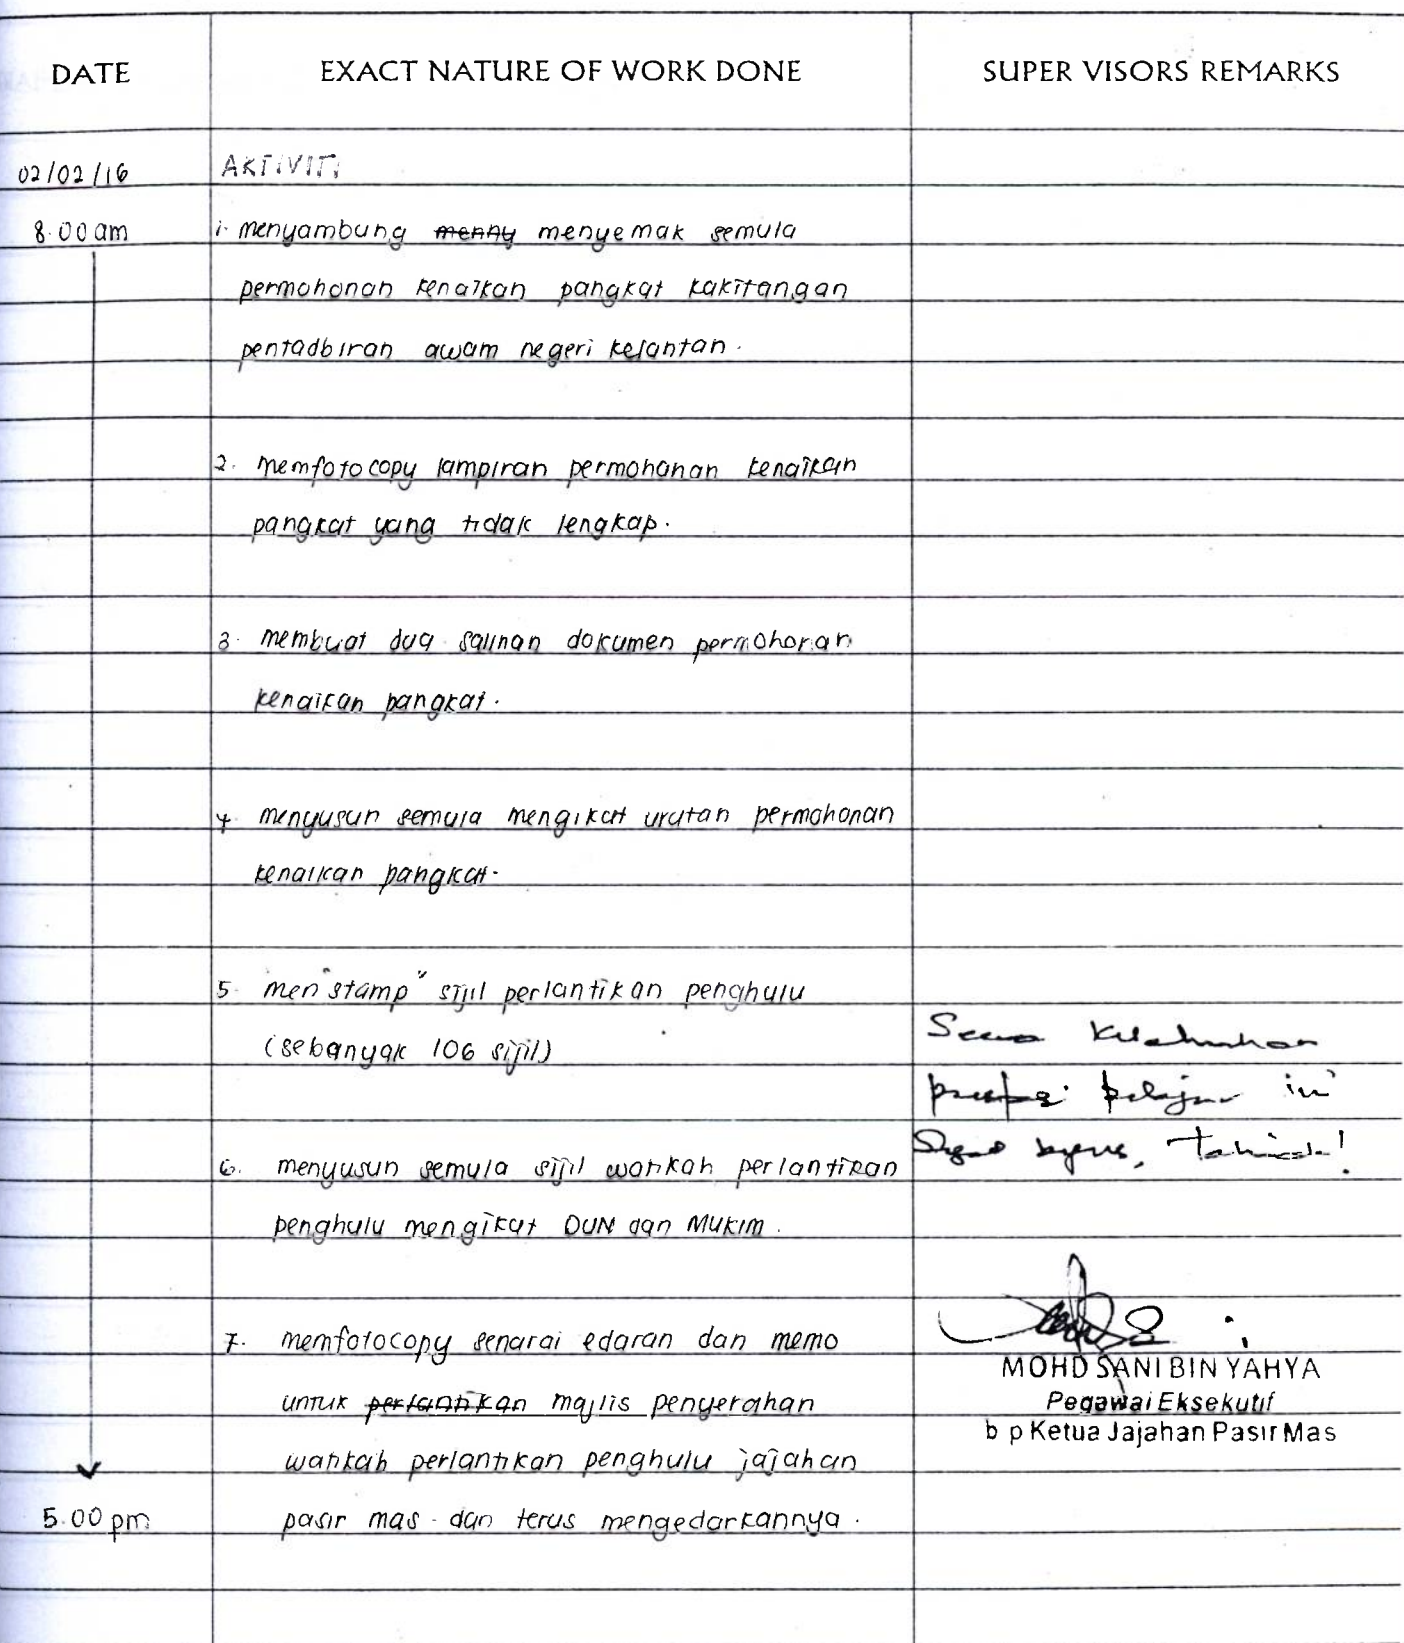 DATE EXACT NATURE OF WORK DONE SUPER VISORS REMARKS
02/02/16 AKTIVITI
8.00 am 1. menyambung menny menyemak semula
permohonan kenaikan pangkat kakitangan
pentadbiran awam negeri kelantan.
2. memfotocopy lampiran permohonan kenaikan
pangkat yang tidak lengkap.
3. membuat dua salinan dokumen permohonan
kenaikan pangkat.
4. menyusun semula mengikut urutan permohonan
kenaikan pangkat.
5. men"stamp" sijil perlantikan penghulu
(sebanyak 106 sijil)
Secara Keseluruhan
prestasi pelajar ini
bagus, Tahniah!
6. menyusun semula sijil watikah perlantikan
penghulu mengikut DUN dan MUKIM.
7. memfotocopy senarai edaran dan memo
untuk perlantikan majlis penyerahan
watikah perlantikan penghulu jajahan
5.00 pm pasir mas dan terus mengedarkannya.
MOHD SANI BIN YAHYA
Pegawai Eksekutif
b p Ketua Jajahan Pasir Mas